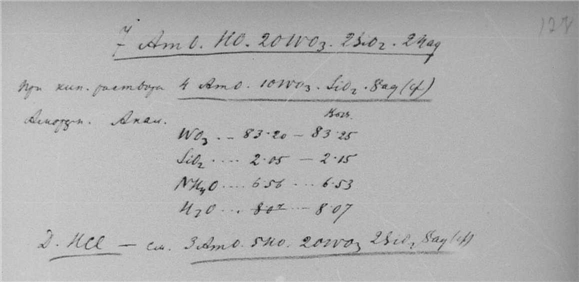 127
7 AmO. HO. 20WO3. 2SiO2. 24aq
При кип. раствора 4 AmO. 10WO3. SiO2. 8aq (cf)
Аморфн. Анал. Выч.
WO3 .. 83.20 — 83.25
SiO2 .... 2.05 — 2.15
NH4O .... 6.56 ... 6.53
H2O ... 8.07 — 8.07
D. HCl — см. 3AmO. 5HO. 20WO3 2SiO2 8aq (cf)